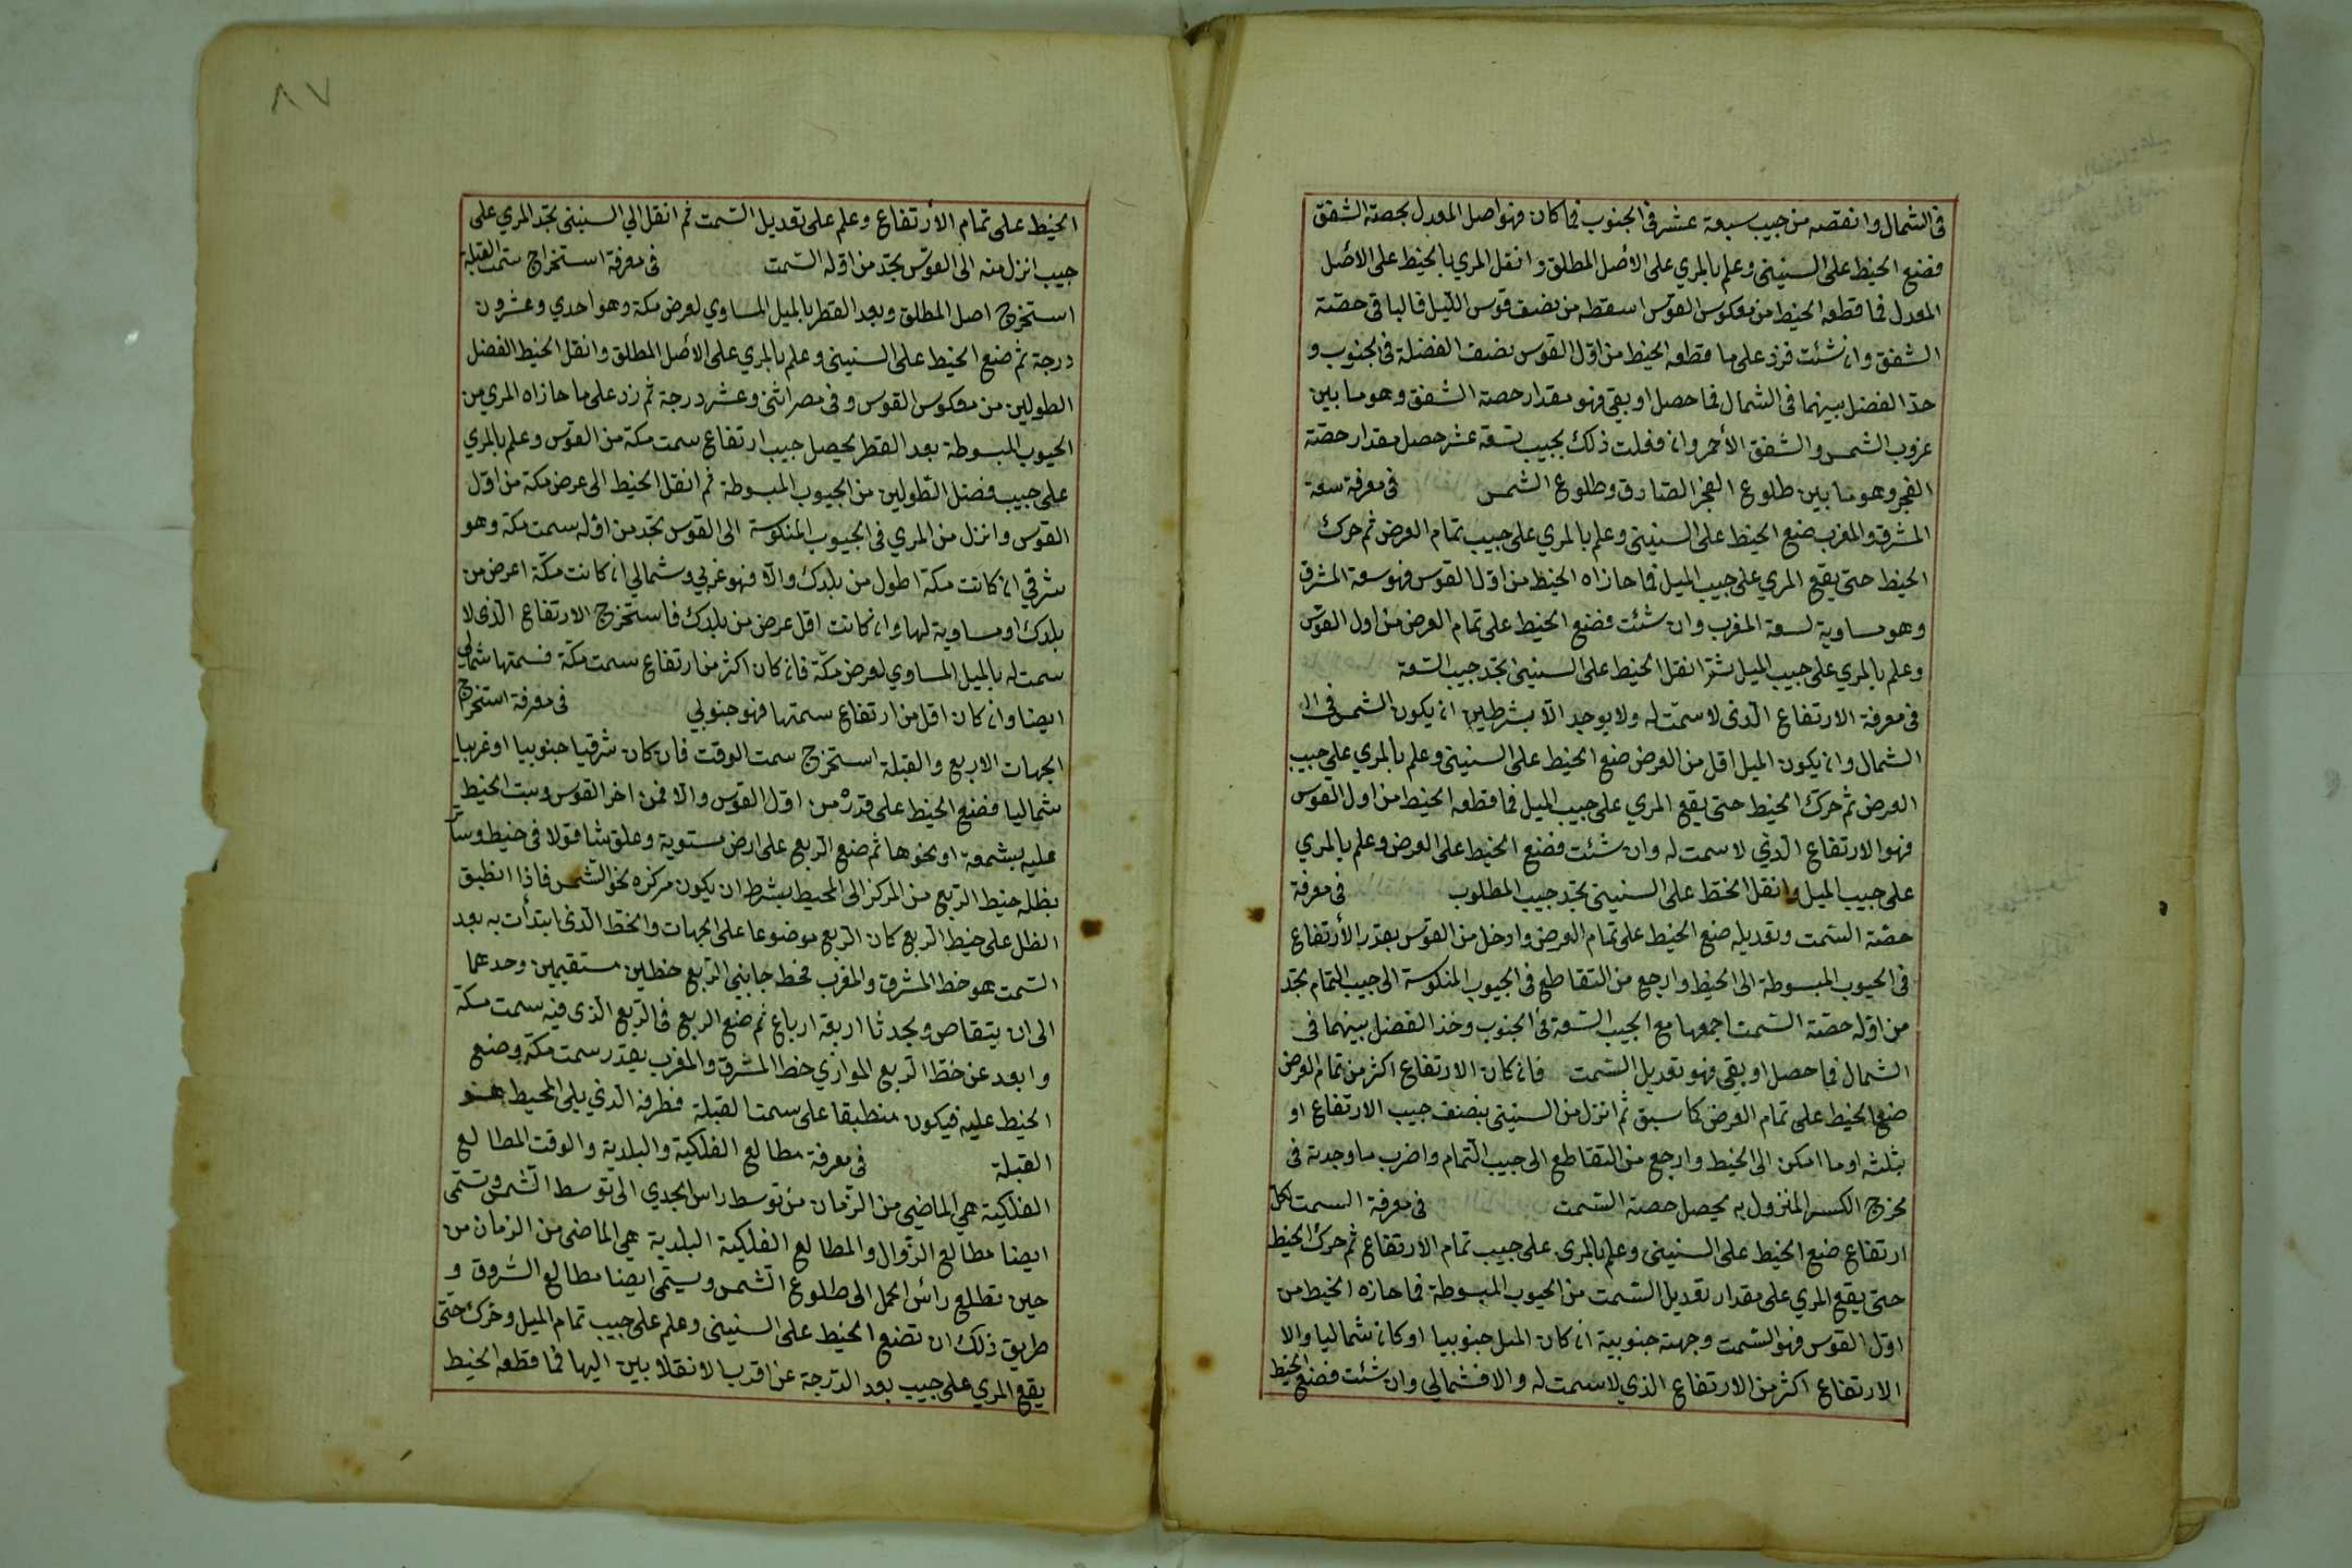 فى الشمال وانقصه من جيب سبعة عشر فى الجنوب فما كان فهو اصل المعدل لحصة الشفق
فضع الخيط على السنينى وعلم بالمري على الأصل المطلق وانقل المري بالخيط على الأصل
المعدل فما قطعه الخيط من معكوس القوس اسقطه من نصف قوس الليل فالباقى حصة
الشفق وان شئت فزد على ما قطعه الخيط من اول القوس نصف الفضلة فى الجنوب و
خذ الفضل بينهما فى الشمال فما حصل او بقى فهو مقدار حصة الشفق وهو ما بين
غروب الشمس والشفق الأحمر وان فعلت ذلك بجيب تسعة عشر حصل مقدار حصة
الفجر وهو ما بين طلوع الفجر الصادق وطلوع الشمس فى معرفة سعة
المشرق والمغرب ضع الخيط على السنينى وعلم بالمري على جيب تمام العرض ثم حرك
الخيط حتى يقع المري على جيب الميل فما حازاه الخيط من اول القوس فهو سعة المشرق
وهو مساوية لسعة المغرب وان شئت فضع الخيط على تمام العرض من اول القوس
وعلم بالمري على جيب الميل ثم انقل الخيط على السنينى تجد جيب السعة
فى معرفة الارتفاع الذى لا سمت له ولا يوجد الا بشرطين ان يكون الشمس فى ال
الشمال وان يكون الميل اقل من العرض ضع الخيط على السنينى وعلم بالمري على جيب
العرض ثم حرك الخيط حتى يقع المري على جيب الميل فما قطعه الخيط من اول القوس
فهو الارتفاع الذي لا سمت له وان شئت فضع الخيط على العرض وعلم بالمري
على جيب الميل وانقل الخيط على السنينى تجد جيب المطلوب فى معرفة
حصة السمت وتعديله ضع الخيط على تمام العرض وادخل من القوس بقدر الأرتفاع
فى الجيوب المبسوطة الى الخيط وارجع من التقاطع فى الجيوب المنكوسة الى جيب التمام تجد
من اوله حصة السمت اجمعها مع الجيب السعة فى الجنوب وخذ الفضل بينهما فى
الشمال فما حصل او بقى فهو تعديل السمت فان كان الارتفاع اكثر من تمام العرض
ضع الخيط على تمام العرض كما سبق ثم انزل من السنينى بنصف جيب الارتفاع او
بثلثه او ما امكن الى الخيط وارجع من التقاطع الى جيب التمام واضرب ما وجدته فى
مخرج الكسر المنزول به يحصل حصة السمت فى معرفة السمت لكل
ارتفاع ضع الخيط على السنينى وعلم بالمرى على جيب تمام الارتفاع ثم حرك الخيط
حتى يقع المري على مقدار تعديل السمت من الجيوب المبسوطة فما حازه الخيط من
اول القوس فهو السمت وجهته جنوبية ان كان الميل جنوبيا او كان شماليا والا
الارتفاع اكثر من الارتفاع الذي لا سمت له والا فشمالى وان شئت فضع الخيط
٨٧
الخيط على تمام الأرتفاع وعلم على تعديل السمت ثم انقل الي السنينى تجد المري على
جيب انزل منه الى القوس تجد من اوله السمت فى معرفة استخراج سمت القبلة
استخرج اصل المطلق وبعد القطر بالميل المساوي لعرض مكة وهو احدي وعشرون
درجة ثم ضع الخيط على السنينى وعلم بالمري على الأصل المطلق وانقل الخيط الفضل
الطولين من معكوس القوس وفى مصر اثنى وعشر درجة ثم زد على ما حازاه المري من
الجيوب المبسوطة بعد القطر يحصل جيب ارتفاع سمت مكة من القوس وعلم بالمري
على جيب فضل الطولين من الجيوب المبسوطة ثم انقل الخيط الى عرض مكة من اول
القوس وانزل من المري فى الجيوب المنكوسة الى القوس تجد من اوله سمت مكة وهو
شرقي ان كانت مكة اطول من بلدك والا فهو غربي وشمالي ان كانت مكة اعرض من
بلدك او مساوية لها وان كانت اقل عرض من بلدك فاستخرج الارتفاع الذى لا
سمت له بالميل المساوي لعرض مكة فان كان اكثر من ارتفاع سمت مكة فسمتها شمالي
ايضا وان كان اقل من ارتفاع سمتها فهو جنوبي فى معرفة استخراج
الجهات الاربع والقبلة استخرج سمت الوقت فان كان شرقيا جنوبيا او غربيا
شماليا فضع الخيط على قدره من اول القوس والا فمن اخر القوس وثبت الخيط
عليه بشمعة او نحوها ثم ضع الربع على ارض مستوية وعلق شاقولا فى خيط وستر
بظله خيط الربع من المركز الى المحيط بشرط ان يكون مركزه نحو الشمس فاذا انطبق
الظل على خيط الربع كان الربع موضوعا على الجهات والخط الذى ابتدأت به بعد
السمت هو خط المشرق والمغرب فخط جانبى الربع خطين مستقيمين وحدهما
الى ان يتقاص ويحدثا اربعة ارباع ثم ضع الربع فى الربع الذى فيه سمت مكة
وابعد عن خط الربع الموازي خط المشرق والمغرب بقدر سمت مكة وضع
الخيط عليه فيكون منطبقا على سمت القبلة فطرفه الذي يلى المحيط هو
القبلة فى معرفة مطالع الفلكية والبلدية والوقت المطالع
الفلكية هي الماضي من الزمان من توسط راس الجدي الى توسط الشمس وتسمى
ايضا مطالع الزوال والمطالع الفلكية البلدية هي الماضى من الزمان من
حين تطلع رأس الحمل الى طلوع الشمس ويسمى ايضا مطالع الشروق و
طريق ذلك ان تضع الخيط على السنينى وعلم على جيب تمام الميل وحرك حتى
يقع المري على جيب بعد الدرجة عن اقرب الانقلابين اليها فما قطعه الخيط